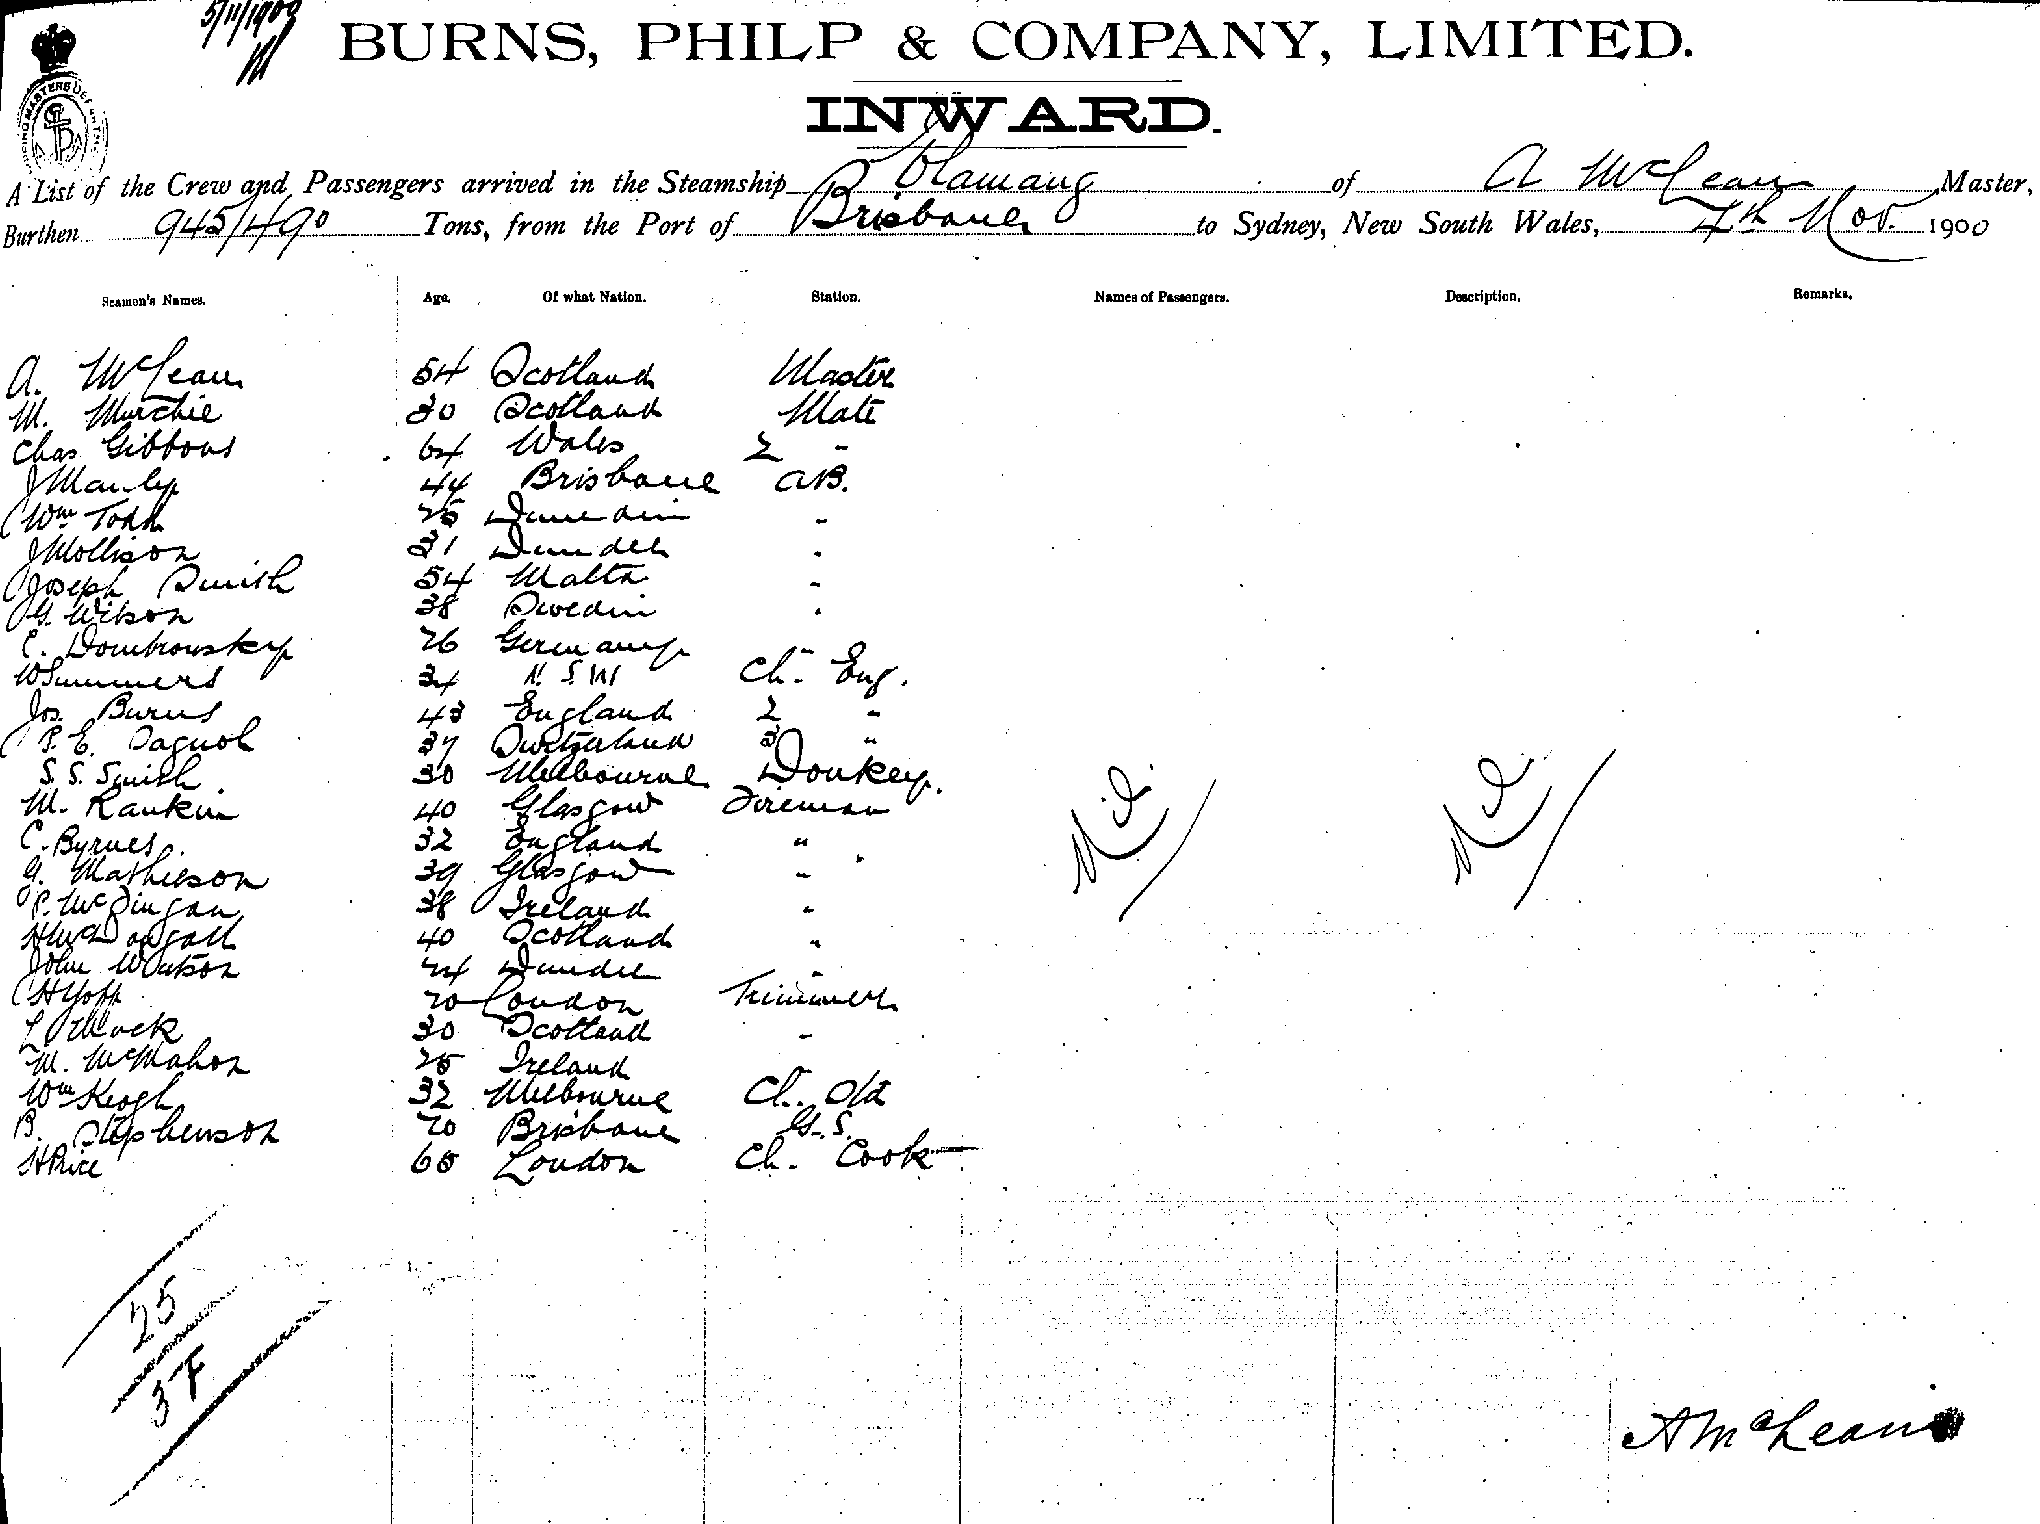 5/11/1900
BURNS, PHILP & COMPANY, LIMITED.
INWARD.
A List of the Crew and Passengers arrived in the Steamship Titamang of A McLean Master,
Burthen 945/490 Tons, from the Port of Brisbane to Sydney, New South Wales, 4th Nov. 1900
Seamen's Names. Age. Of what Nation. Station. Names of Passengers. Description. Remarks.
A. McLean 54 Scotland Master
M. Murchie 30 Scotland Mate
Chas Gibbons 64 Wales 2 "
J Manley 44 Brisbane AB.
Wm Todd 25 Dunedin "
J Mollison 31 Dundee "
Joseph Smith 54 Malta "
G. Wilson 38 Sweden "
C. Dombrowsky 26 Germany
W Summers 34 N.S.W Ch. Eng.
Jos. Burns 43 England 2 "
P. E. Dagnol 37 Switzerland 3 "
S. S. Smith 30 Melbourne Donkey.
M. Rankin 40 Glasgow Fireman
Nil Nil
C. Byrnes. 32 England "
G. Mathieson 39 Glasgow "
P. 38 Ireland "
H McDougall 40 Scotland "
John Watson 24 Dundee "
H 20 London Trimmer
L 30 Scotland "
M. McMahon 25 Ireland
Wm Keogh 32 Melbourne Ch. Std
B. Stephenson 20 Brisbane G.S.
H Price 65 London Ch. Cook
25
37
A McLean